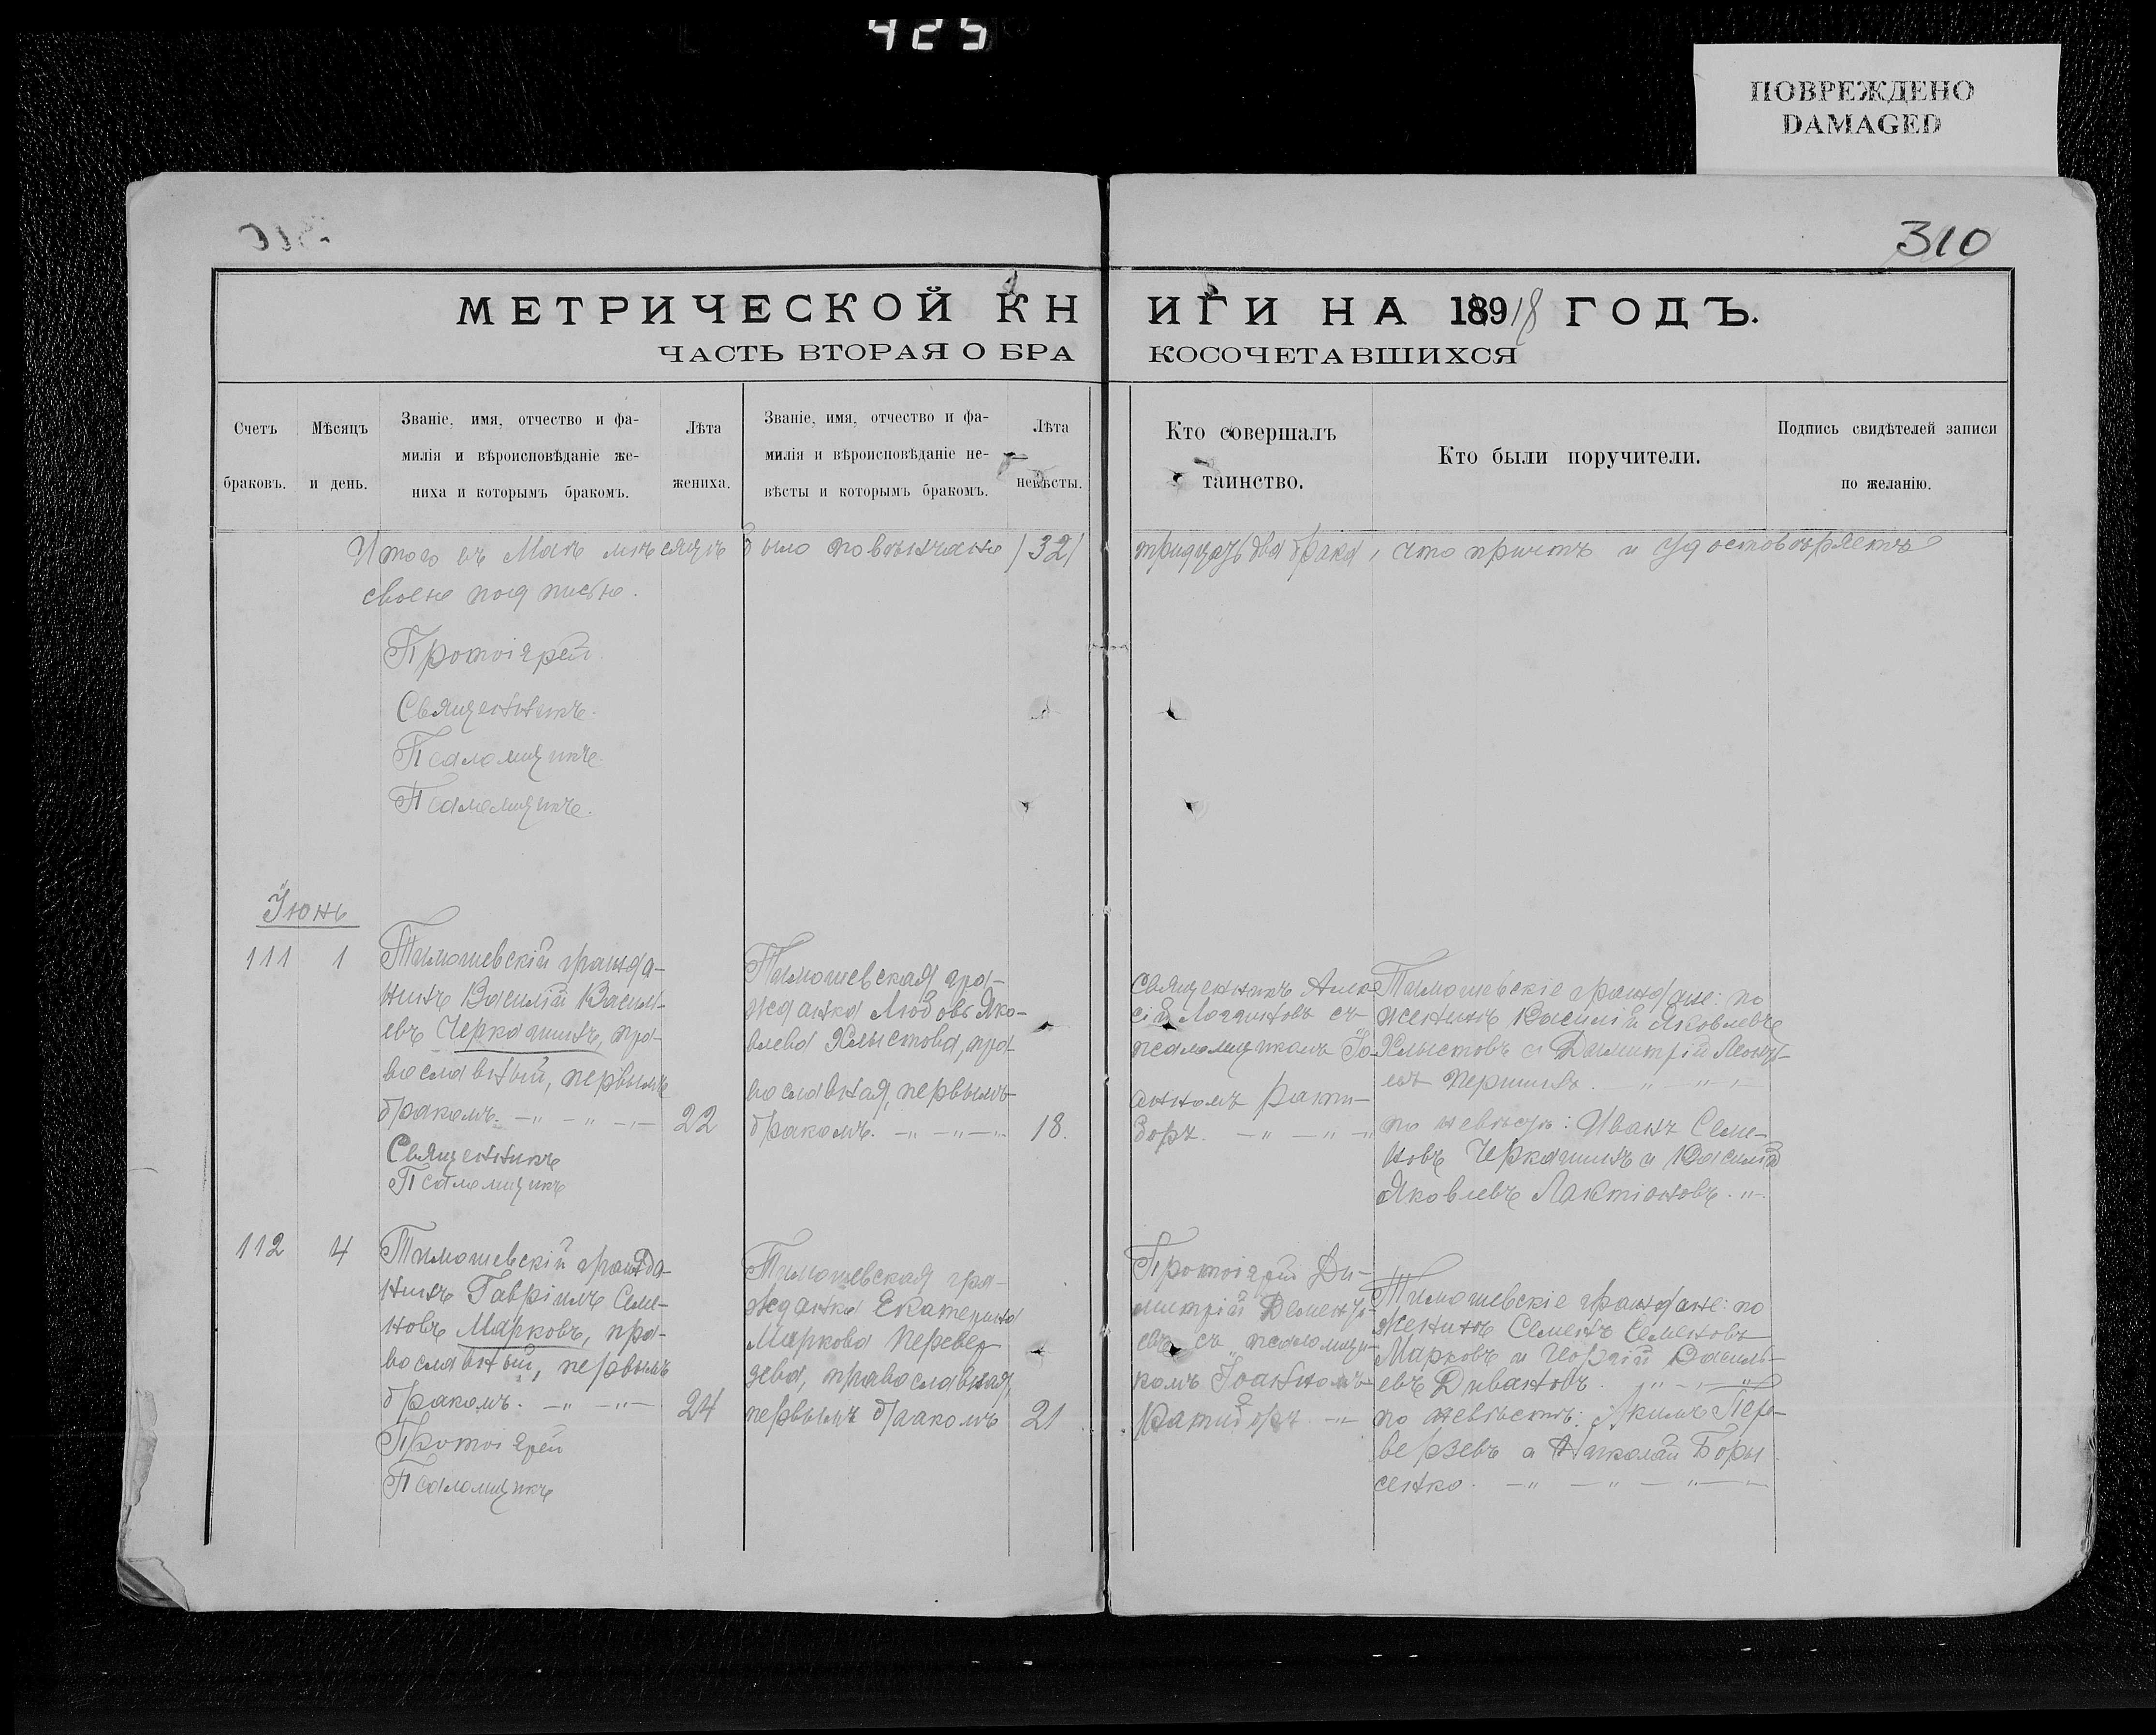 425
ПОВРЕЖДЕНО
DAMAGED
310
МЕТРИЧЕСКОЙ КНИГИ НА 18918 ГОДЪ.
ЧАСТЬ ВТОРАЯ О БРАКОСОЧЕТАВШИХСЯ
Счетъ
браковъ.
Мѣсяцъ
и день.
Званіе, имя, отчество и фа-
милія и вѣроисповѣданіе же-
ниха и которымъ бракомъ.
Лѣта
жениха.
Званіе, имя, отчество и фа-
милія и вѣроисповѣданіе не-
вѣсты и которымъ бракомъ.
Лѣта
невѣсты.
Кто совершалъ
таинство.
Кто были поручители.
Подпись свидѣтелей записи
по желанію.
Итого въ Маѣ мѣсяцѣ было повѣнчано /32/ тридцать два брака, что причтъ и удостовѣряетъ
своею подписью.
Протоіерей
Священникъ.
Псаломщикъ.
Псаломщикъ.
Іюнь
111
1
Тимошевскій гражда-
нинъ Василій Василь-
евъ Черкашинъ, пра-
вославный, первымъ
бракомъ.
22
Священникъ
Псаломщикъ
Тимошевская гра-
жданка Любовь Яко-
влева Хлыстова, пра-
вославная, первымъ
бракомъ.
18.
Священникъ Алек-
сій съ
псаломщикомъ Іо-
анномъ Рати-
боръ.
Тимошевскіе граждане: по
женихѣ Василій Яковлевъ
Хлыстовъ и Димитрій Леонть-
евъ Першинъ.
по невѣстѣ: Иванъ Семе-
новъ Черкашинъ и Василій
Яковлевъ Лактіоновъ.
112
4
Тимошевскій гражда-
нинъ Гавріилъ Семе-
новъ Марковъ, пра-
вославный, первымъ
бракомъ.
24
Протоіерей
Псаломщикъ
Тимошевская гра-
жданка Екатерина
Маркова Перевер-
зева, православная,
первымъ браакомъ
21
Протоіерей Ди-
митрій Дементь-
евъ съ псаломщи-
комъ Іоанномъ
Ратиборъ.
Тимошевскіе граждане: по
женихѣ Семенъ Семеновъ
Марковъ и Георгій Василь-
евъ Дивановъ.
по невѣстѣ: Акимъ Пере-
верзевъ и Николай Бори
сенко.